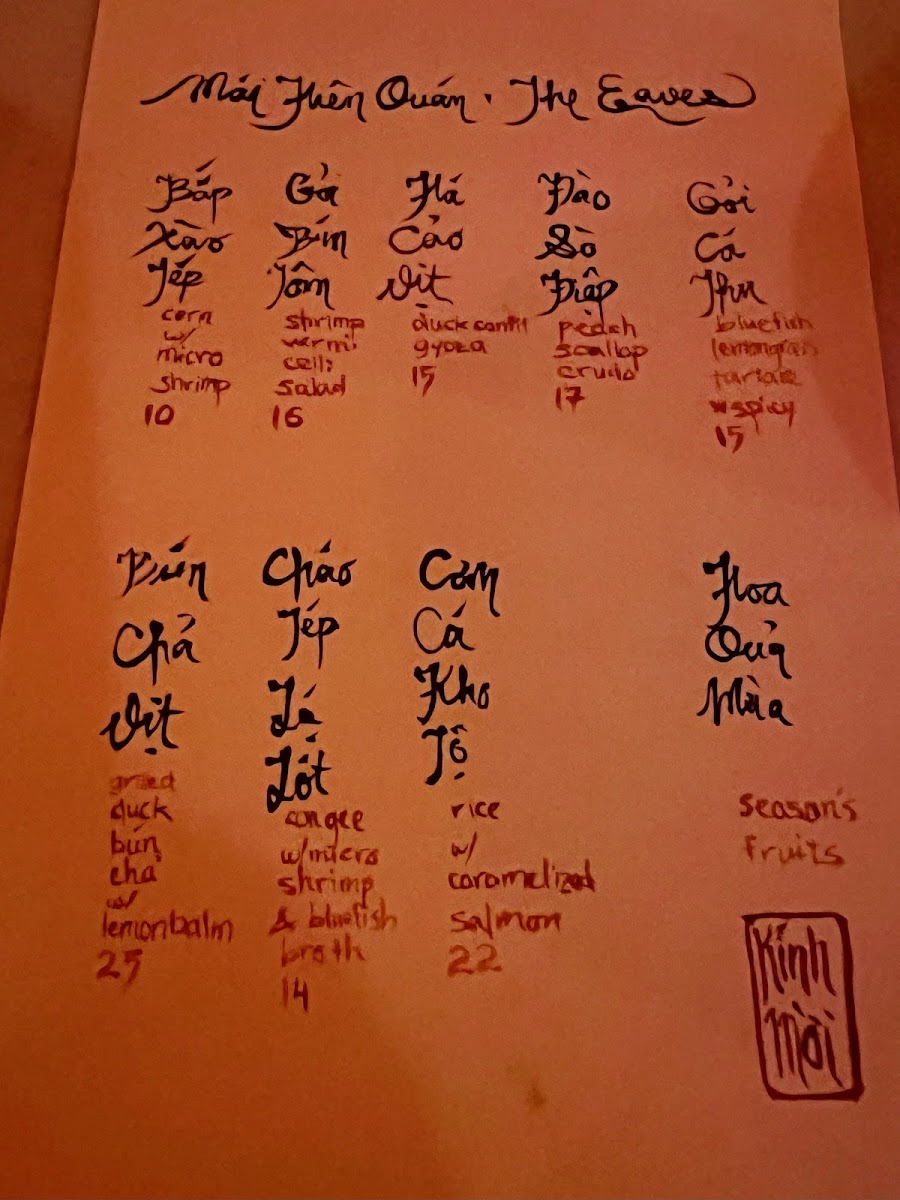 Mái Hiên Quán · The Eaves
Bắp
Xào
Tép
corn
w/
micro
shrimp
10
Gỏi
Bún
Tôm
shrimp
vermi
celli
salad
16
Há
Cảo
Vịt
duck confit
gyoza
15
Đào
Sò
Điệp
peach
scallop
crudo
17
Gỏi
Cá
Thu
bluefish
lemongrass
tartare
w spicy
15
Bún
Chả
Vịt
grilled
duck
bún
chả
w/
lemonbalm
25
Cháo
Tép
Lá
Lốt
congee
w/micro
shrimp
& bluefish
broth
14
Cơm
Cá
Kho
Tộ
rice
w/
caramelized
salmon
22
Hoa
Quả
Mùa
season's
fruits
Kính
Mời